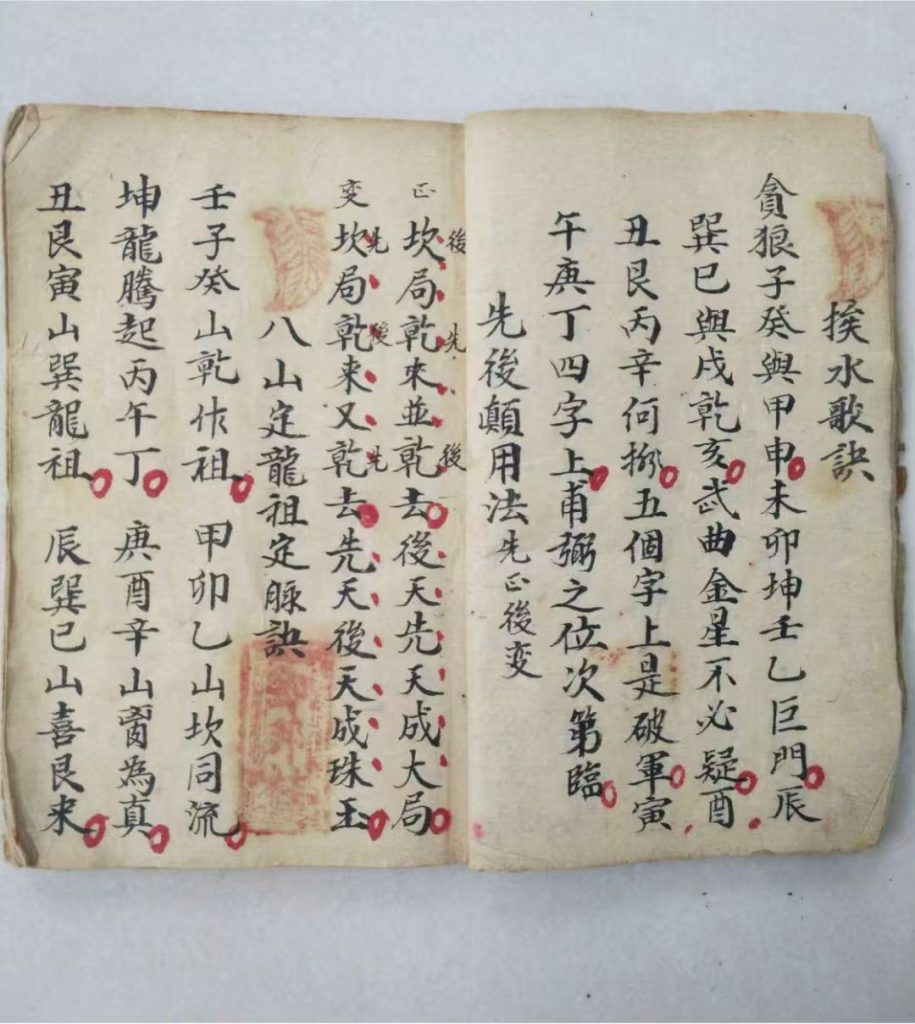 挨水歌訣
貪狼子癸與甲申未卯坤壬乙巨門辰
巽巳與戌乾亥武曲金星不必疑酉
丑艮丙辛何㧡五個字上是破軍寅
午庚丁四字上甫弼之位次第臨
先後顛用法先正後变
正坎局乾來並乾去後天先天成大局
後先後
变坎局乾来又乾去先天後天成珠玉
先後先
八山定龍祖定脈訣
壬子癸山乾作祖 甲卯乙山坎同流
坤龍騰起丙午丁 庚酉辛山 為真
丑艮寅山巽龍祖 辰巽巳山喜艮来